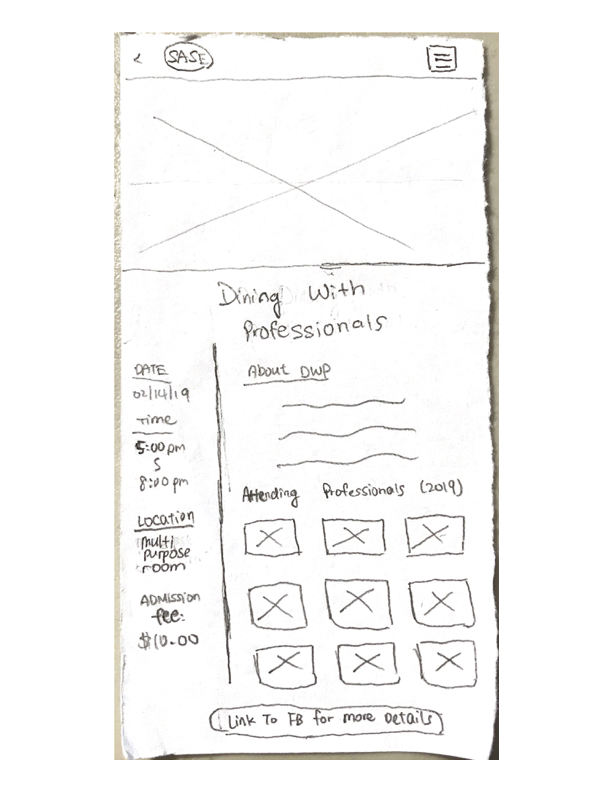 < SASE
Dining With
Professionals
DATE
02/14/19
Time
5:00 pm
S
8:00 pm
LOCATION
multi
purpose
room
ADMISSION
fee:
$10.00
About DWP
Attending Professionals (2019)
Link To FB for more Details